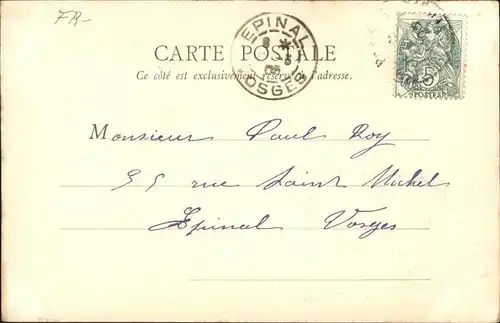 FR-
EPINAL
VOSGES
CARTE POSTALE
Ce côté est exclusivement réservé à l'adresse.
Monsieur Paul Roy
35 rue Saint Michel
Epinal Vosges